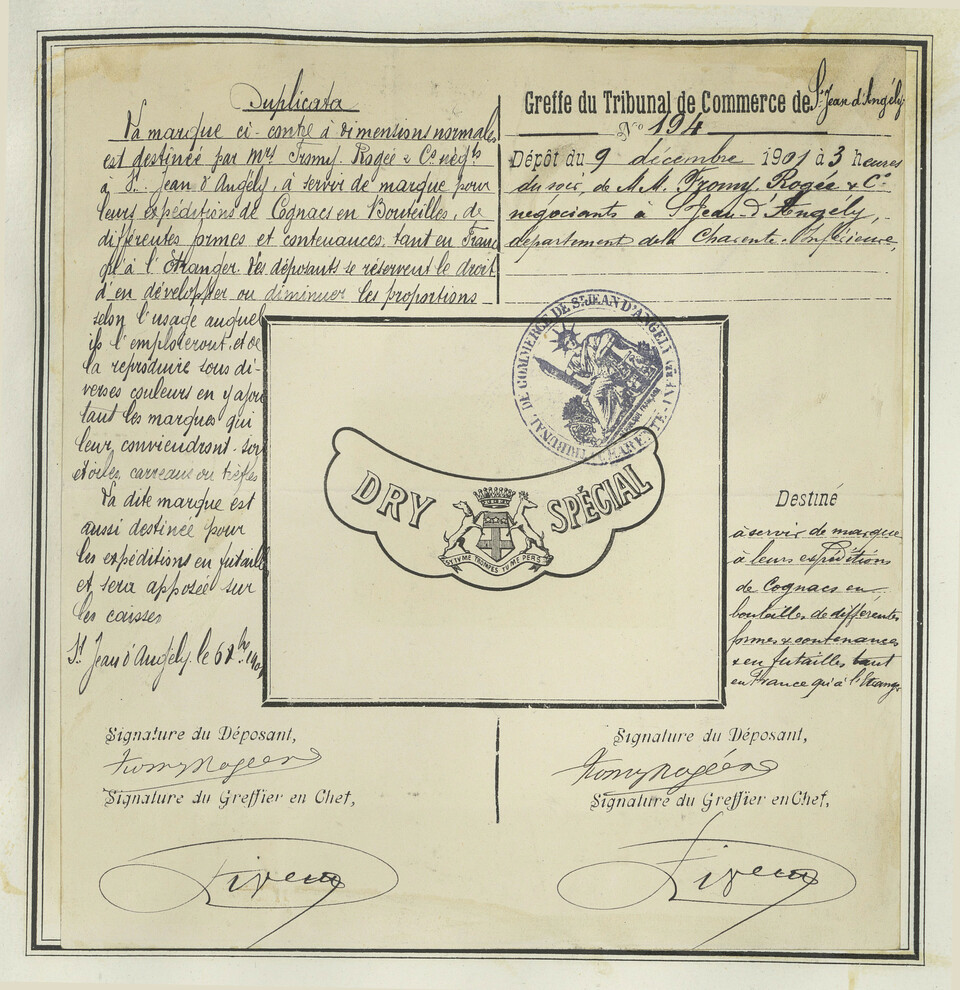 Duplicata
La marque ci-contre à dimensions normales
est destinée par Mrs Fromy, Rogée & Co négts
à St Jean d'Angély, à servir de marque pour
leurs expéditions de Cognacs en Bouteilles, de
différentes formes et contenances, tant en France
qu'à l'Etranger. Les déposants se réservent le droit
d'en développer ou diminuer les proportions
selon l'usage auquel
ils l'emploieront, et de
la reproduire sous di-
verses couleurs en y ajou
tant les marques qui
leur conviendront, soit
étoiles, carreaux ou trèfles
La dite marque est
aussi destinée pour
les expéditions en futailles
et sera apposée sur
les caisses
St Jean d'Angély, le
Greffe du Tribunal de Commerce de St Jean d'Angély
No 194
Dépôt du 9 décembre 1901 à 3 heures
du soir, de M.M. Fromy, Rogée & Co
négociants à St Jean-d'Angély,
département de la Charente-Inférieure,
TRIBUNAL DE COMMERCE DE St JEAN D'ANGELY
CHARENTE-INFRE
DRY SPÉCIAL
SY TV ME TROMPES TV ME PERS
Destiné
à servir de marque
à leurs expéditions
de Cognacs en
bouteilles de différentes
formes & contenances
& en futailles tant
en France qu'à l'Etrang
Signature du Déposant,
Fromy Rogée
Signature du Greffier en Chef,
Signature du Déposant,
Fromy Rogée
Signature du Greffier en Chef,